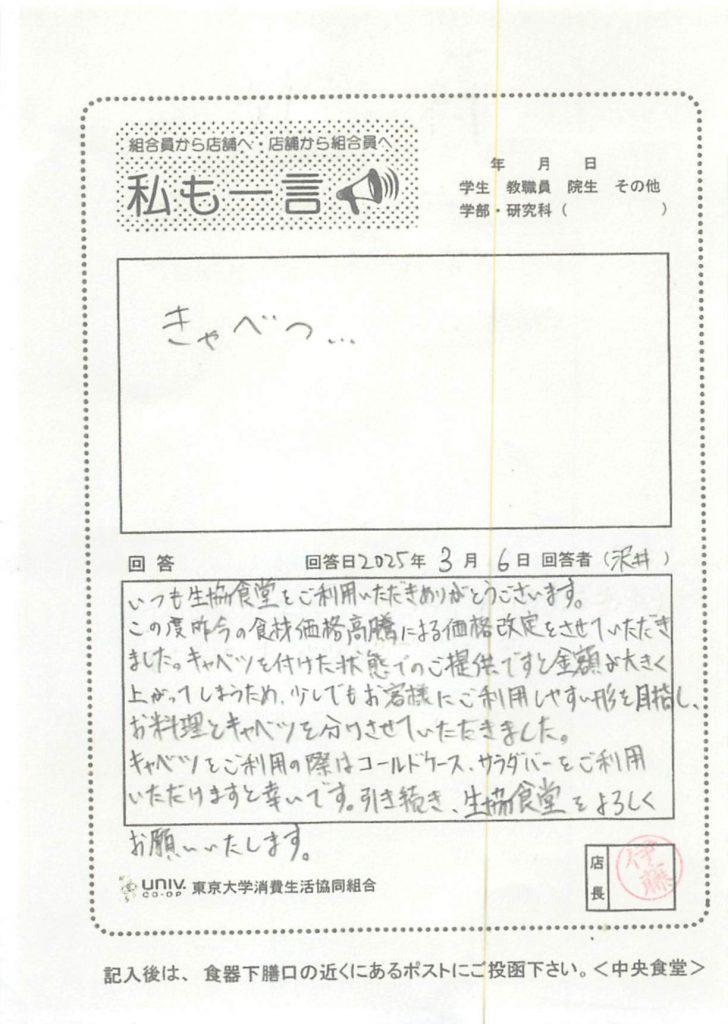 組合員から店舗へ・店舗から組合員へ
私も一言
年 月 日
学生 教職員 院生 その他
学部・研究科（ ）
きゃべつ…
回答 回答日2025年 3月 6日 回答者（沢井）
いつも生協食堂をご利用いただきありがとうございます。
この度昨今の食材価格高騰による価格改定をさせていただき
ました。キャベツを付けた状態でのご提供ですと金額が大きく
上がってしまうため、少しでもお客様にご利用しやすい形を目指し、
お料理とキャベツを分けさせていただきました。
キャベツをご利用の際はコールドケース、サラダバーをご利用
いただけますと幸いです。引き続き、生協食堂をよろしく
お願いいたします。
店長 伊藤
UNIV. CO-OP 東京大学消費生活協同組合
記入後は、食器下膳口の近くにあるポストにご投函下さい。＜中央食堂＞